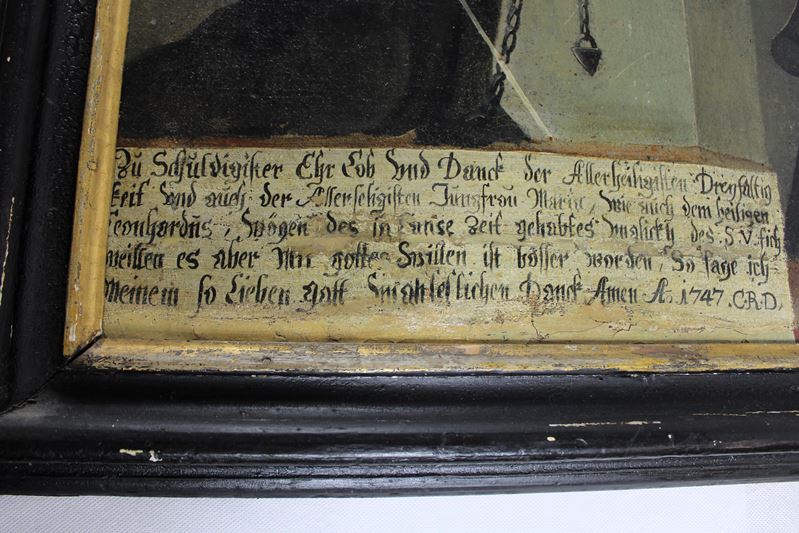 Zu Schuldigister Ehr Lob Und Danck der Allerheiligisten Dreyfaltig
keit Und auch der Allerseligisten Jungfrau Maria, Wie auch dem heiligen
Leonhardus, Wögen des in lause Zeit gehabtes Unglickh des S.V. fich
weillen es aber Mit gottes Willen ist bösser worden, So sage ich
Meinem so Lieben gott Unentleflichen Danck Amen Ao 1747. C.R.D.